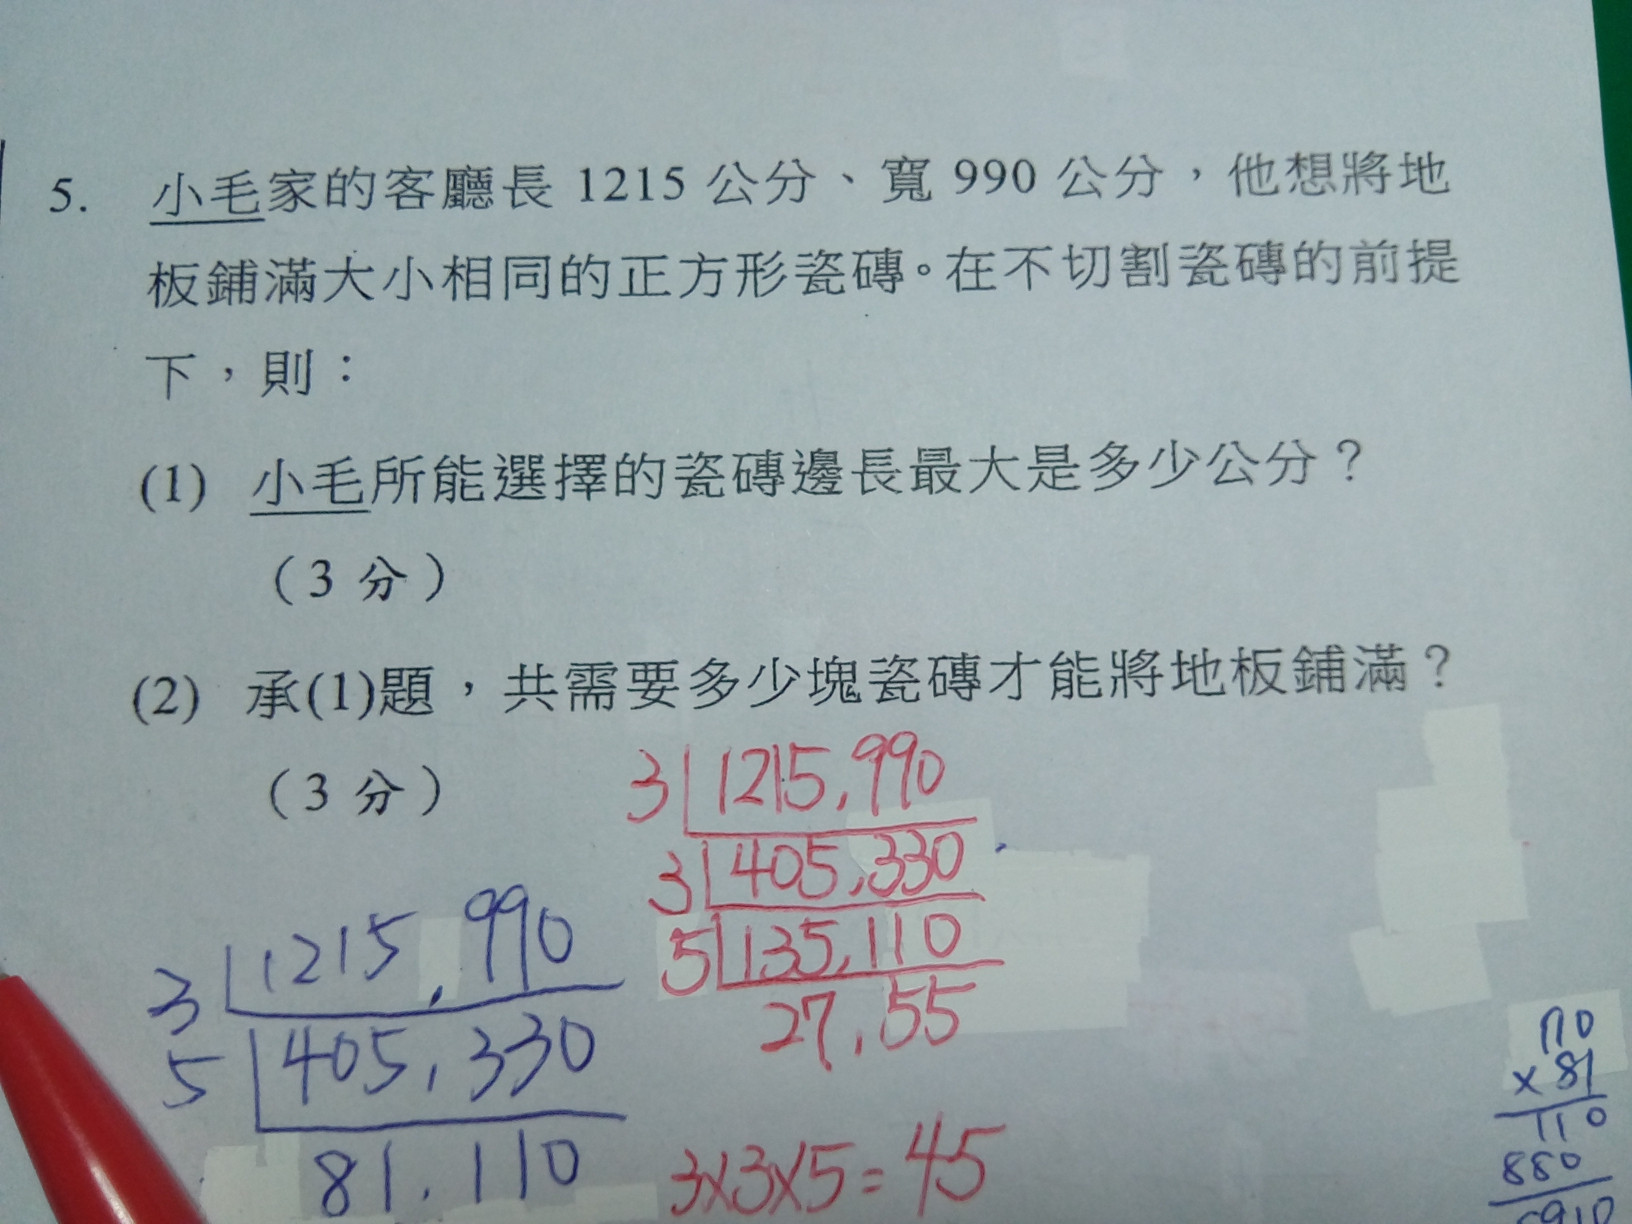 5. 小毛家的客廳長 1215 公分、寬 990 公分，他想將地
板鋪滿大小相同的正方形瓷磚。在不切割瓷磚的前提
下，則：
(1) 小毛所能選擇的瓷磚邊長最大是多少公分？
（3 分）
(2) 承(1)題，共需要多少塊瓷磚才能將地板鋪滿？
（3 分）
3 1215,990
3 405,330
5 135,110
27,55
3×3×5=45
3 1215,990
5 405,330
81,110
110
×81
110
880